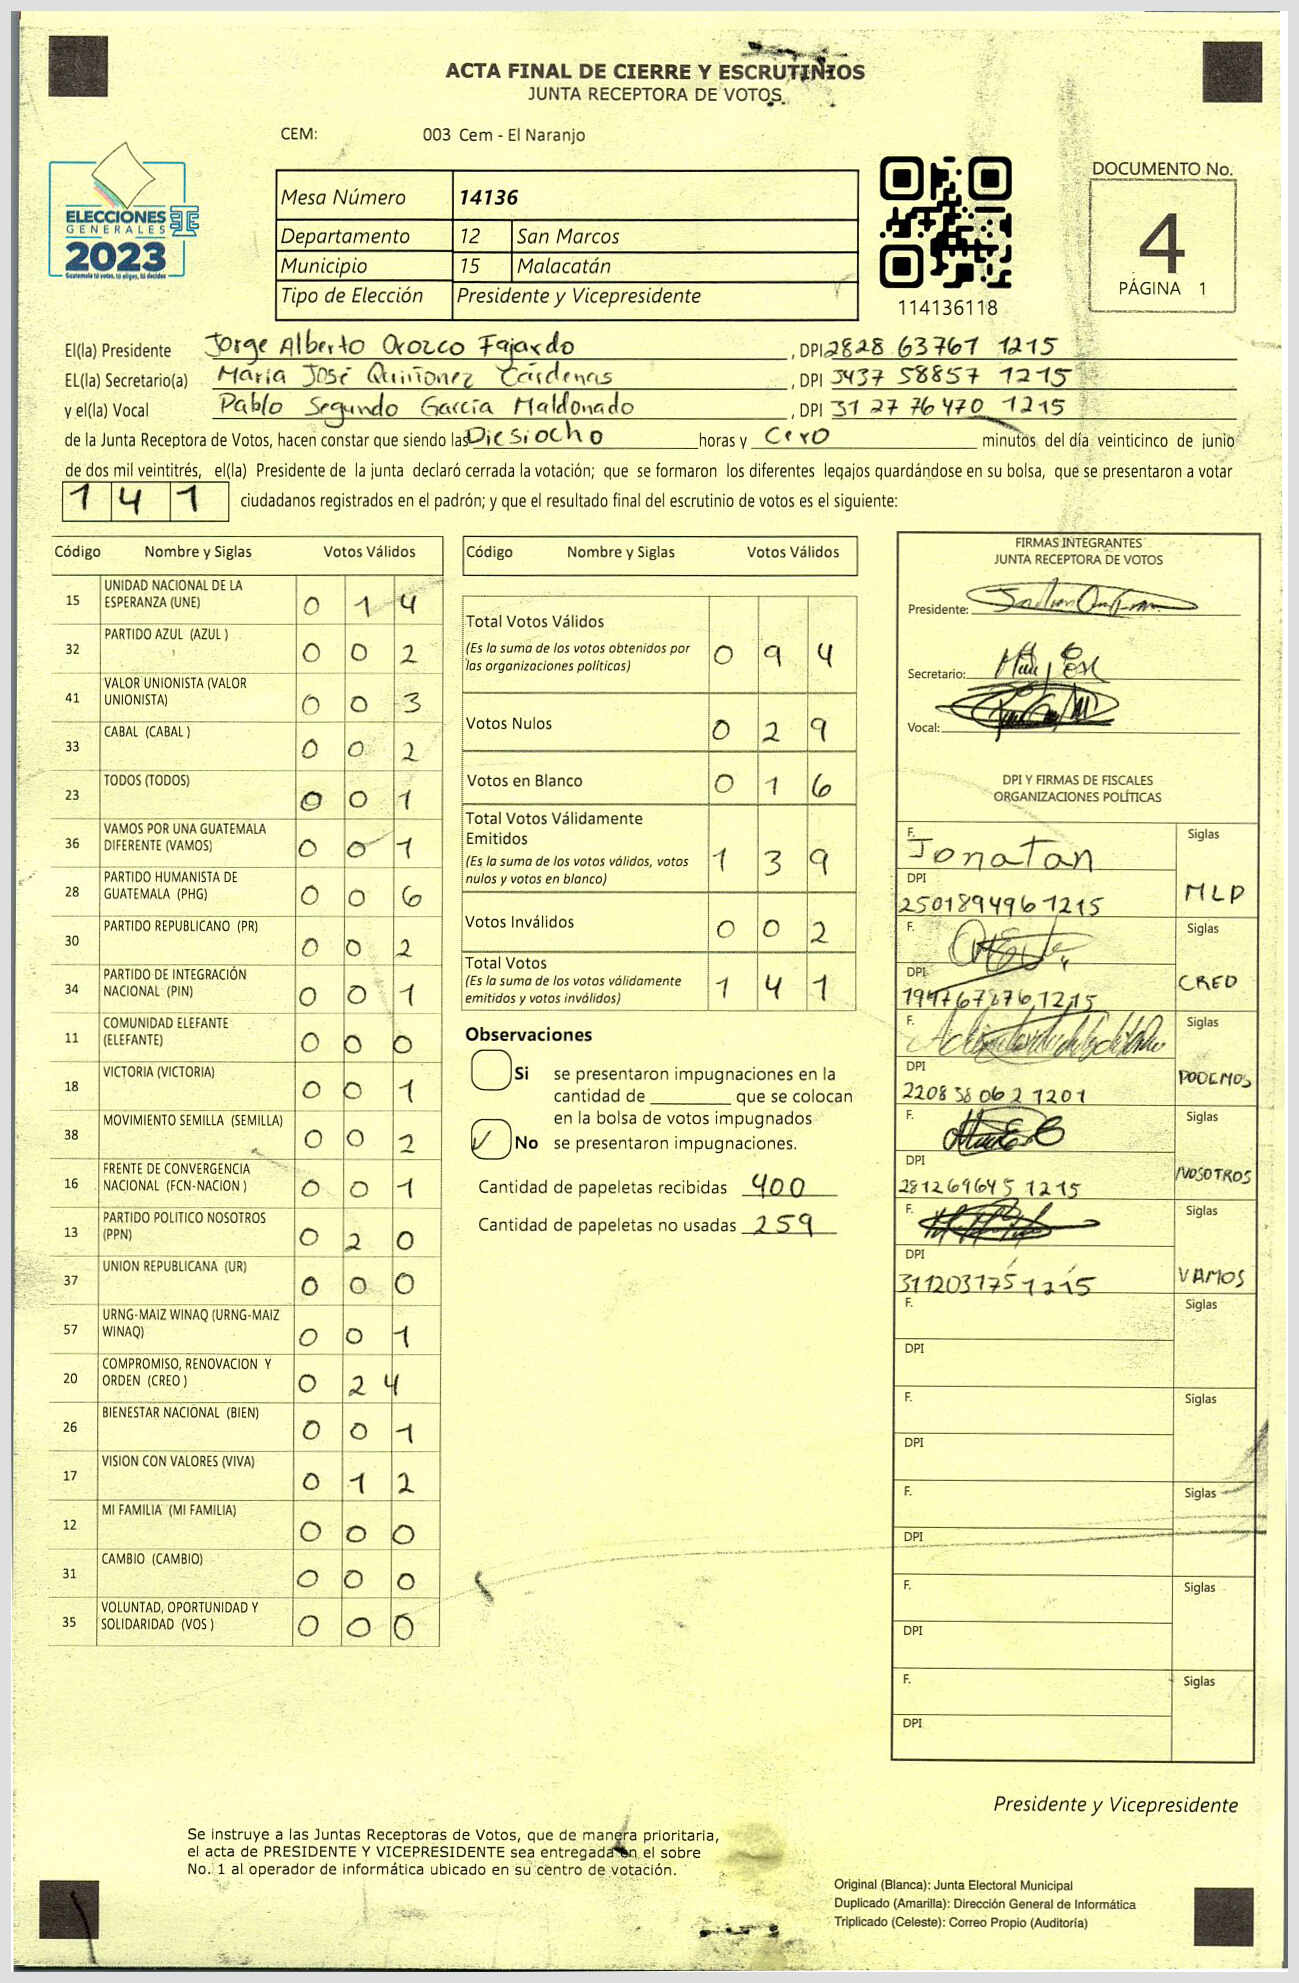 ACTA FINAL DE CIERRE Y ESCRUTINIOS
JUNTA RECEPTORA DE VOTOS
CEM: 003 Cem - El Naranjo
ELECCIONES
GENERALES
2023
Guatemala tú votas, tú eliges, tú decides
Mesa Número 14136
Departamento 12 San Marcos
Municipio 15 Malacatán
Tipo de Elección Presidente y Vicepresidente
114136118
DOCUMENTO No.
4
PÁGINA 1
El(la) Presidente Jorge Alberto Orozco Fajardo , DPI 2828 63761 1215
EL(la) Secretario(a) María José Quiñonez Cárdenas , DPI 3437 58857 1215
y el(la) Vocal Pablo Segundo García Maldonado , DPI 31 27 76 470 1215
de la Junta Receptora de Votos, hacen constar que siendo las Diesiocho horas y Cero minutos del día veinticinco de junio
de dos mil veintitrés, el(la) Presidente de la junta declaró cerrada la votación; que se formaron los diferentes legajos quardándose en su bolsa, que se presentaron a votar
1 4 1 ciudadanos registrados en el padrón; y que el resultado final del escrutinio de votos es el siguiente:
Código Nombre y Siglas Votos Válidos
15 UNIDAD NACIONAL DE LA
ESPERANZA (UNE) 0 1 4
32 PARTIDO AZUL (AZUL ) 0 0 2
41 VALOR UNIONISTA (VALOR
UNIONISTA) 0 0 3
33 CABAL (CABAL ) 0 0 2
23 TODOS (TODOS) 0 0 1
36 VAMOS POR UNA GUATEMALA
DIFERENTE (VAMOS) 0 0 1
28 PARTIDO HUMANISTA DE
GUATEMALA (PHG) 0 0 6
30 PARTIDO REPUBLICANO (PR) 0 0 2
34 PARTIDO DE INTEGRACIÓN
NACIONAL (PIN) 0 0 1
11 COMUNIDAD ELEFANTE
(ELEFANTE) 0 0 0
18 VICTORIA (VICTORIA) 0 0 1
38 MOVIMIENTO SEMILLA (SEMILLA) 0 0 2
16 FRENTE DE CONVERGENCIA
NACIONAL (FCN-NACION ) 0 0 1
13 PARTIDO POLITICO NOSOTROS
(PPN) 0 2 0
37 UNION REPUBLICANA (UR) 0 0 0
57 URNG-MAIZ WINAQ (URNG-MAIZ
WINAQ) 0 0 1
20 COMPROMISO, RENOVACION Y
ORDEN (CREO ) 0 2 4
26 BIENESTAR NACIONAL (BIEN) 0 0 1
17 VISION CON VALORES (VIVA) 0 1 2
12 MI FAMILIA (MI FAMILIA) 0 0 0
31 CAMBIO (CAMBIO) 0 0 0
35 VOLUNTAD, OPORTUNIDAD Y
SOLIDARIDAD (VOS ) 0 0 0
Código Nombre y Siglas Votos Válidos
Total Votos Válidos
(Es la suma de los votos obtenidos por
las organizaciones políticas) 0 9 4
Votos Nulos 0 2 9
Votos en Blanco 0 1 6
Total Votos Válidamente
Emitidos
(Es la suma de los votos válidos, votos
nulos y votos en blanco) 1 3 9
Votos Inválidos 0 0 2
Total Votos
(Es la suma de los votos válidamente
emitidos y votos inválidos) 1 4 1
Observaciones
Si se presentaron impugnaciones en la
cantidad de ________ que se colocan
en la bolsa de votos impugnados
No se presentaron impugnaciones.
Cantidad de papeletas recibidas 400
Cantidad de papeletas no usadas 259
FIRMAS INTEGRANTES
JUNTA RECEPTORA DE VOTOS
Presidente:
Secretario:
Vocal:
DPI Y FIRMAS DE FISCALES
ORGANIZACIONES POLÍTICAS
F. Jonatan Siglas
DPI MLP
2501894961215
F. Siglas
DPI CREO
1947678761215
F. Siglas
DPI PODEMOS
2208 38 062 1201
F. Siglas
DPI NOSOTROS
281269645 1215
F. Siglas
DPI VAMOS
3112031751215
F. Siglas
DPI
F. Siglas
DPI
F. Siglas
DPI
F. Siglas
DPI
F. Siglas
DPI
Presidente y Vicepresidente
Se instruye a las Juntas Receptoras de Votos, que de manera prioritaria,
el acta de PRESIDENTE Y VICEPRESIDENTE sea entregada en el sobre
No. 1 al operador de informática ubicado en su centro de votación.
Original (Blanca): Junta Electoral Municipal
Duplicado (Amarilla): Dirección General de Informática
Triplicado (Celeste): Correo Propio (Auditoría)